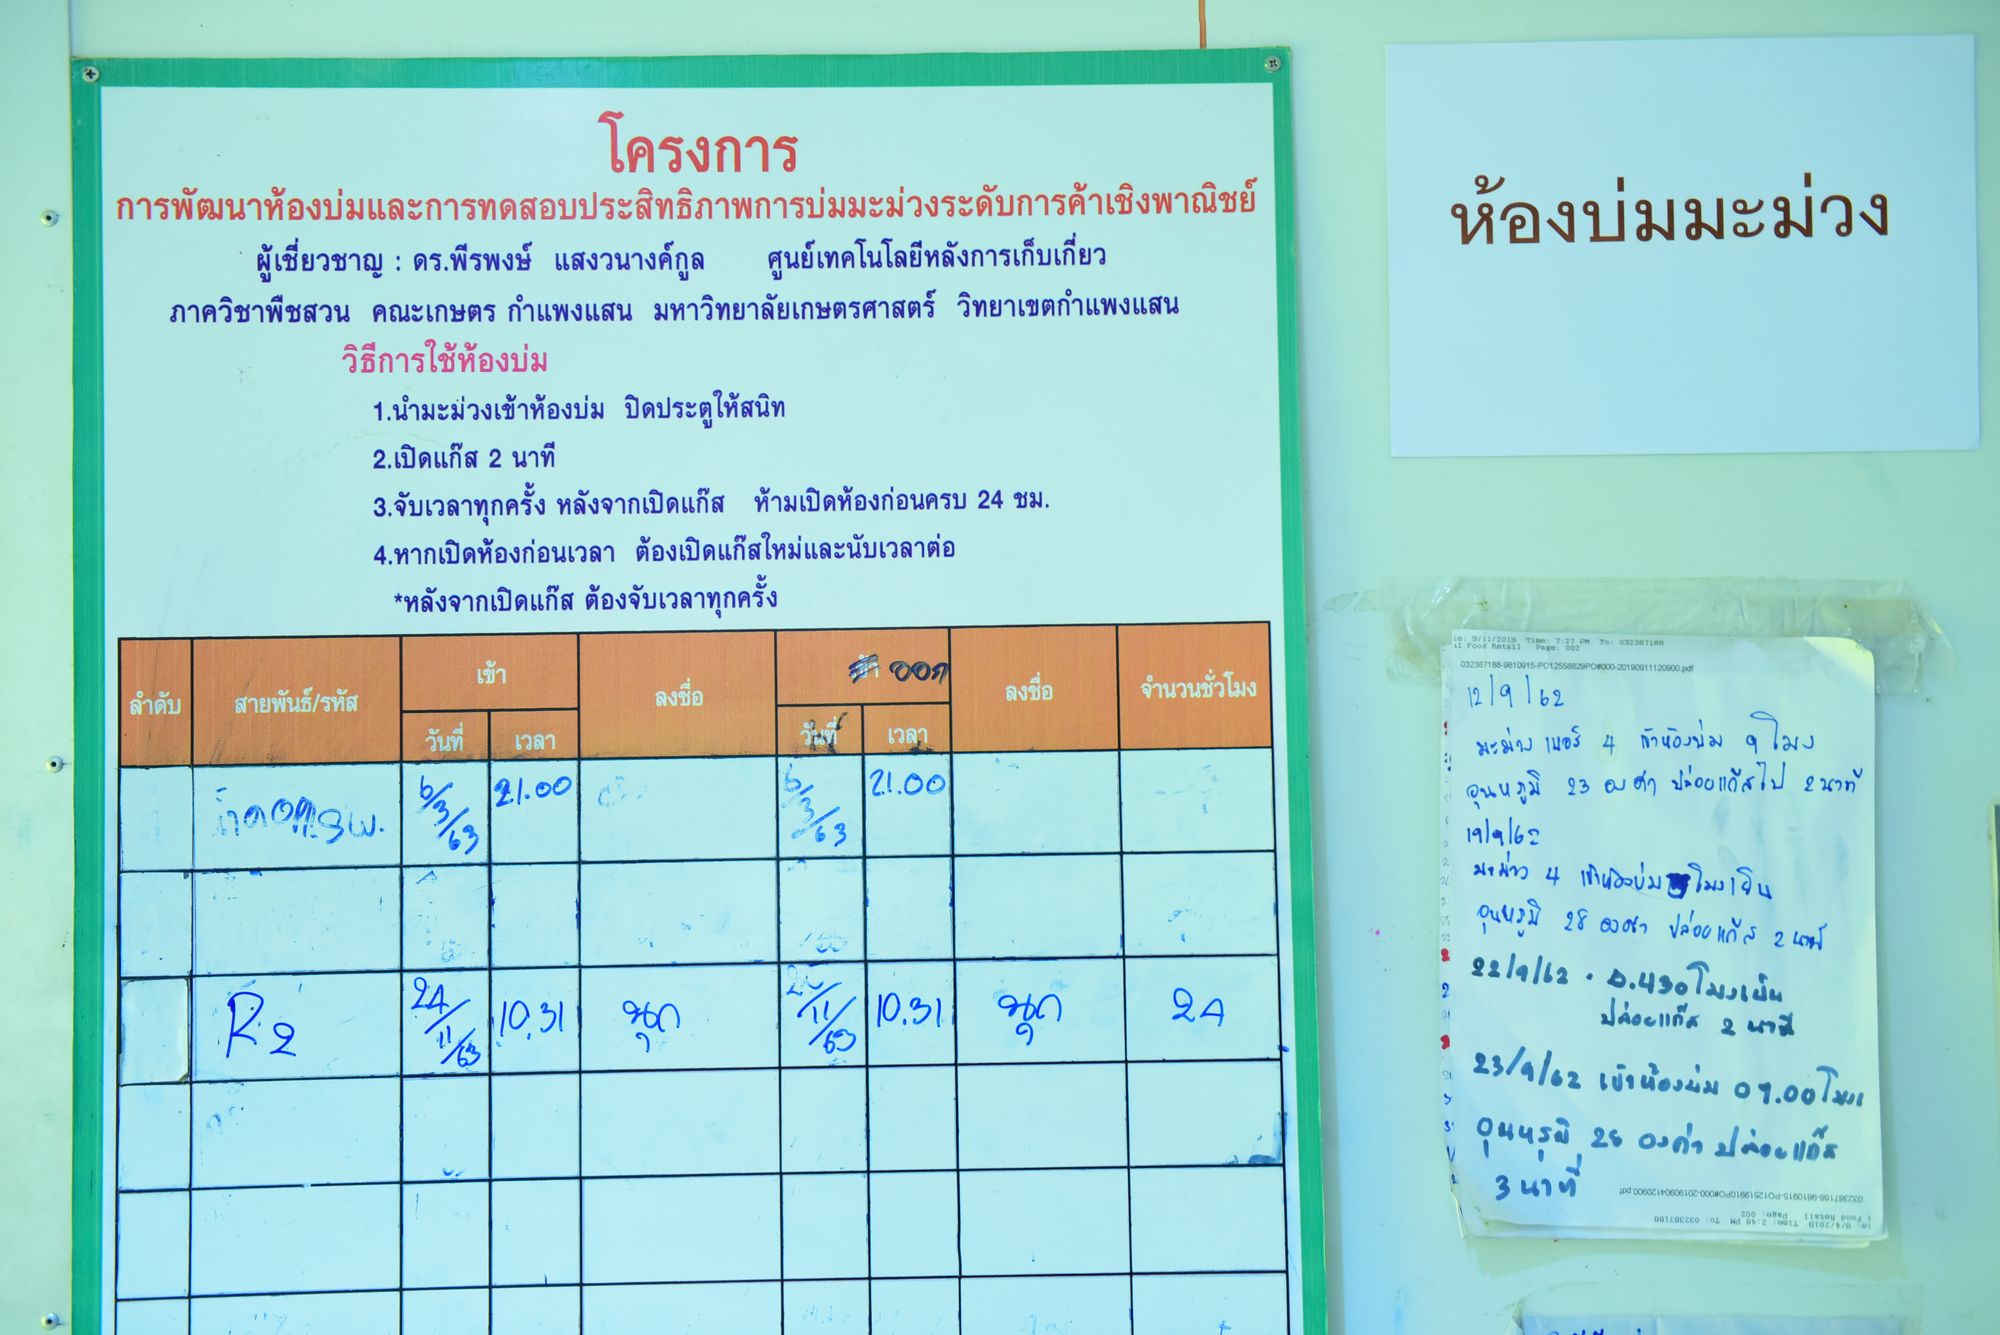 โครงการ
การพัฒนาห้องบ่มและการทดสอบประสิทธิภาพการบ่มมะม่วงระดับการค้าเชิงพาณิชย์
ผู้เชี่ยวชาญ : ดร.พีรพงษ์ แสงวนางค์กูล ศูนย์เทคโนโลยีหลังการเก็บเกี่ยว
ภาควิชาพืชสวน คณะเกษตร กำแพงแสน มหาวิทยาลัยเกษตรศาสตร์ วิทยาเขตกำแพงแสน
วิธีการใช้ห้องบ่ม
1.นำมะม่วงเข้าห้องบ่ม ปิดประตูให้สนิท
2.เปิดแก๊ส 2 นาที
3.จับเวลาทุกครั้ง หลังจากเปิดแก๊ส ห้ามเปิดห้องก่อนครบ 24 ชม.
4.หากเปิดห้องก่อนเวลา ต้องเปิดแก๊สใหม่และนับเวลาต่อ
*หลังจากเปิดแก๊ส ต้องจับเวลาทุกครั้ง
ลำดับ สายพันธ์/รหัส เข้า ลงชื่อ ออก ลงชื่อ จำนวนชั่วโมง
วันที่ เวลา วันที่ เวลา
6/3/63 21.00 6/3/63 21.00
R2 24/11/63 10.31 นุก /11/63 10.31 นุก 24
ห้องบ่มมะม่วง
9/11/2019 Time: 7:27 PM To: 032387188
Food Retail Page: 002
032387188-9810915-PO12558829PO#000-20190911120900.pdf
12/9/62
มะม่วง เบอร์ 4 เข้าห้องบ่ม 9 โมง
อุนหภูมิ 23 องศา ปล่อยแก๊สไป 2 นาที
19/9/62
มะม่วง 4 เข้าห้องบ่ม โมงเย็น
อุนหภูมิ 28 องศา ปล่อยแก๊ส 2 นาที
22/9/62 . 430 โมงเย็น
ปล่อยแก๊ส 2 นาที
23/9/62 เข้าห้องบ่ม 09.00 โมง
อุนหรุมิ 28 องศา ปล่อยแก๊ส
3 นาที
Food Retail Page: 002
9/4/2019 Time: 2:48 PM To: 032387188